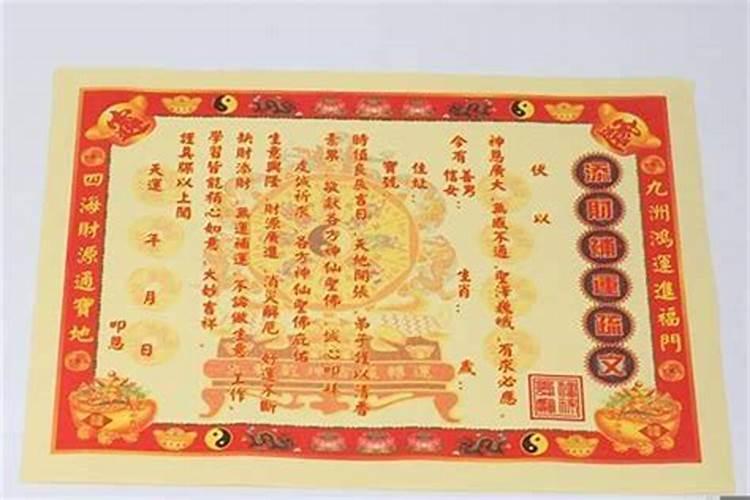 九洲鴻運進福門
添財補運疏文
伏以
神恩廣大 無感不通 聖澤巍峨 有求必應
今有善男信女： 生肖： 歲：
住址：
寶號
時值良辰吉日 天地開張 弟子謹以清香
素果 敬献各方神仙聖佛 誠心叩拜
虔誠祈求 各方神仙聖佛庇佑
生意興隆 財源廣進 消災解厄 好運不斷
缺財添財 無運補運 不論做生意、工作、
學習皆能稱心如意 大妙吉祥
謹具疏以上聞
天運 年 月 日
叩恩
四海財源通寶地